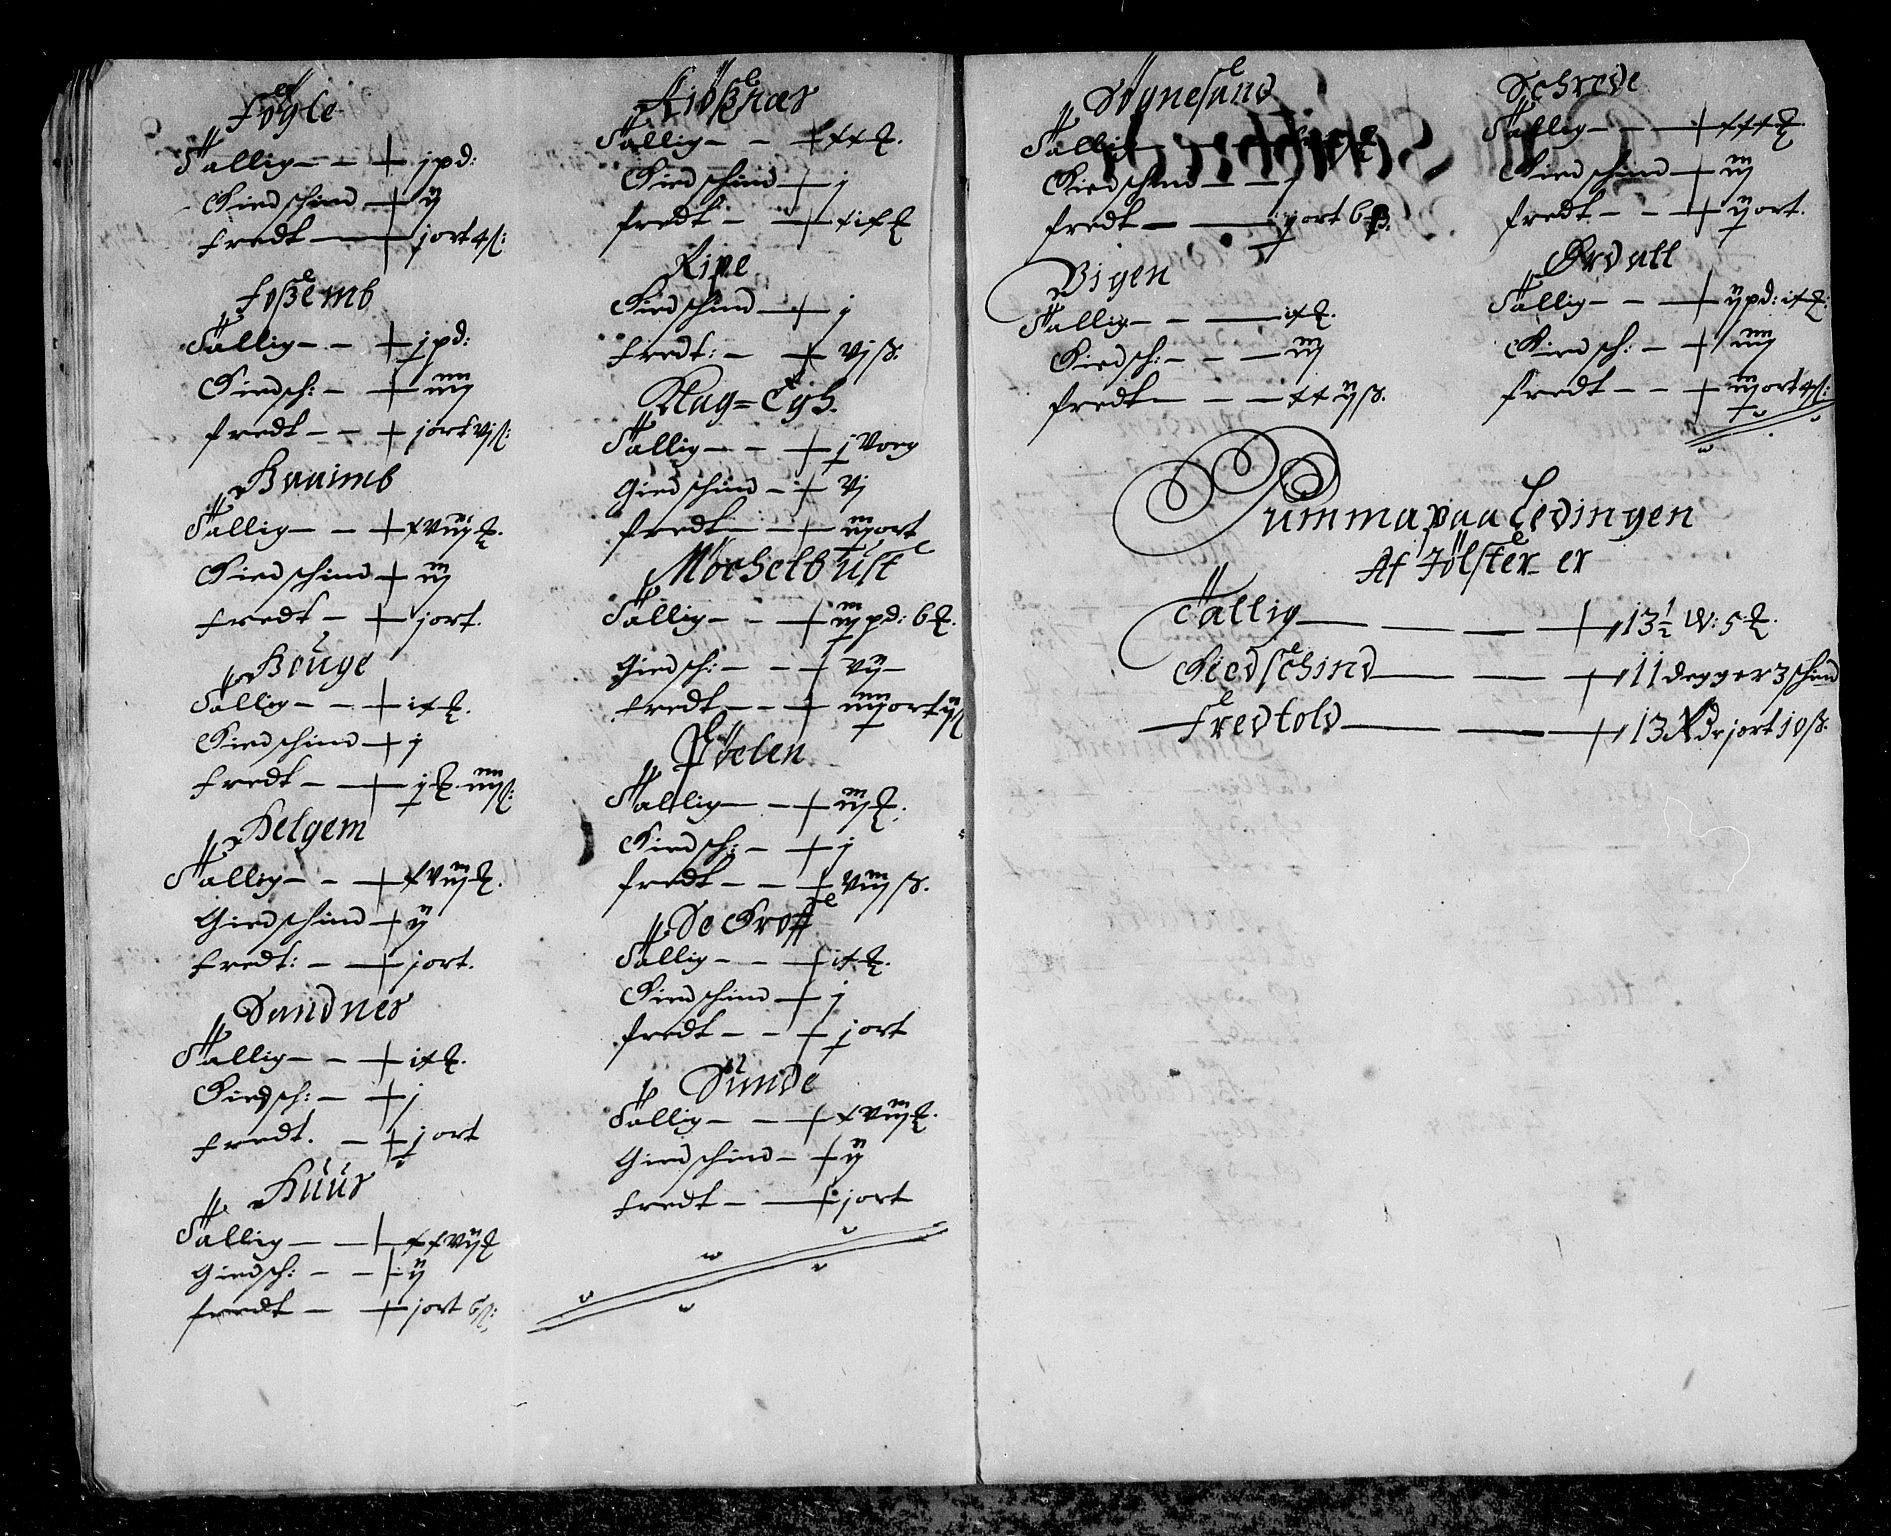 Føgle
Tallig – – j pd:
Giedschind – ij
fredt – j ort 4 ß:
Foßemb
Tallig – – j pd:
Giedsch: – iiij
fredt – – j ort vj ß:
Aaaimb
Tallig – – xviij ℔.
Giedschind iij
fredt – j ort.
Bouge
Tallig – – ix ℔.
Giedschind j
fredt – iiij ß:
Helgem
Tallig – – xviij ℔.
Giedschind ij
fredt: – j ort.
Sandnes
Tallig – – ix ℔.
Giedsch: – j
fredt. – j ort
Huus
Tallig – – xxvij ℔
Giedsch: – – ij
fredt – j ort 6 ß:
Kiößnæs
Tallig – – xx ℔.
Giedschind j
fredt –
Ripe
Giedschind j
fredt: – vj ß.
Aag=Eigh.
Tallig – – j Voeg
Giedschind – vj
fredt – iij ort
Möchelbust
Tallig – – iij pd: 6 ℔.
Giedsch: – – vij
fredt – – iiij ort ij ß
Tallig – – iij ℔.
Giedsch: – j
fredt – – viij ß.
De Groff
Tallig – – ix ℔.
Giedschind j
fredt – – j ort
Sunde
Tallig – – xviij ℔.
Giedschind – ij
fredt – j ort
Sögnesand
Tallig
Giedschind – – j
fredt – j ort 6 ß.
Vigen
Tallig – – ix ℔.
Giedsch: – – iij
fredt – – xx ij ß.
Schrede
Tallig – – xxx ℔
Giedschind iij
fredt – – ij ort.
Årdall
Tallig – – ij pd: ix ℔:
Giedsch: – iiij
fredt – – iij ort 4 ß:
Summa paa Ledingen
Af Jölster er
Tallig – – – 13½ W: 5 ℔.
Giedschind – – 11 degger 3 schind
Fredtold – – 13 Rdr j ort 10 ß.